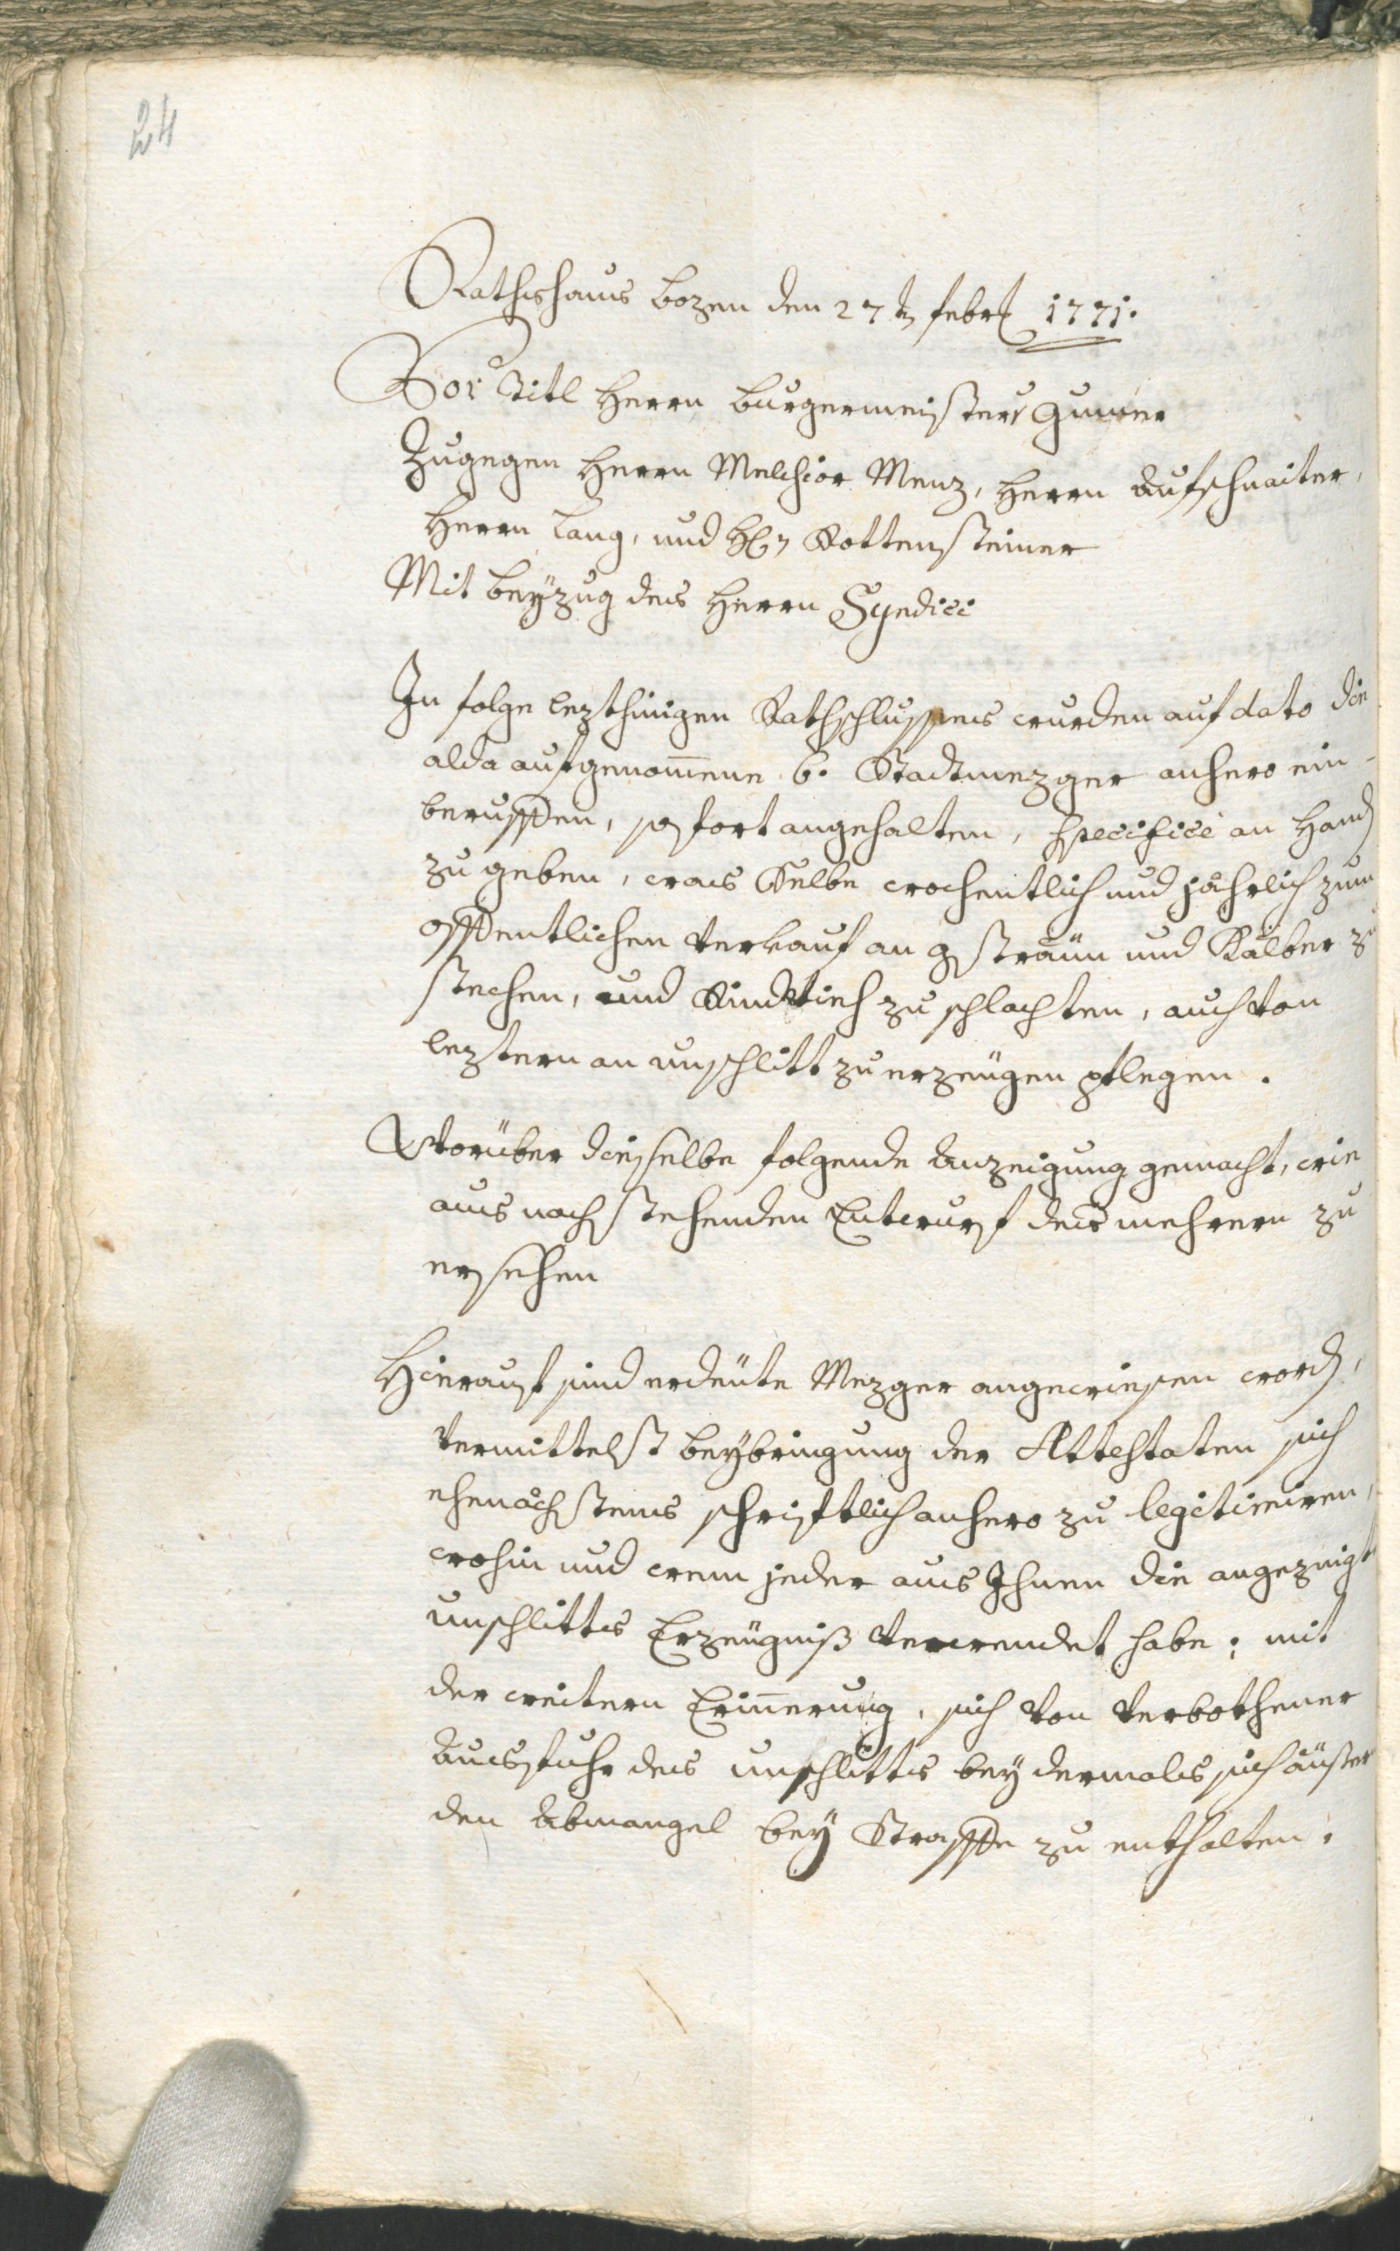 24
Rathshaus Bozen den 27t febr 1771.
Vor Titl Herrn Burgermeister Gumer
Zugegen Herrn Melchior Menz, Herrn Aufschnaiter,
Herrn Lang, und H Rottensteiner
Mit Beÿzug des Herrn Syndici
In folge lezthinigen Rathschlusses wurden auf dato die
alda aufgenom̅ene 6. Stadtmezger anhero ein-
beruffen, sofort angehalten, specifice an Hand
zu geben, was Selbe wochentlich und jährlich zum
offentlichen Verkauf an gsträun und Kälber zu
stechen, und Rindvieh zu schlachten, auch von
leztern an unschlitt zu erzeugen pflegen.
Worüber dieselbe folgende Anzeigung gemacht, wie
aus nachstehenden Entwurf des mehrern zu
ersehen
Hierauf sind erdeute Mezger angewiesen word,
vermittelst beÿbringung der Attestaten sich
ehenächstens schriftlich anhero zu legitimiren,
wohin und wem jeder aus Ihnen die angezeigte
unschlitts Erzeugniß verwendet habe; mit
der weitern Erin̅erung, sich von verbothener
Ausfuhr des unschlitts beÿ dermals sich äußer
den Abmangel beÿ Straffe zu enthalten.